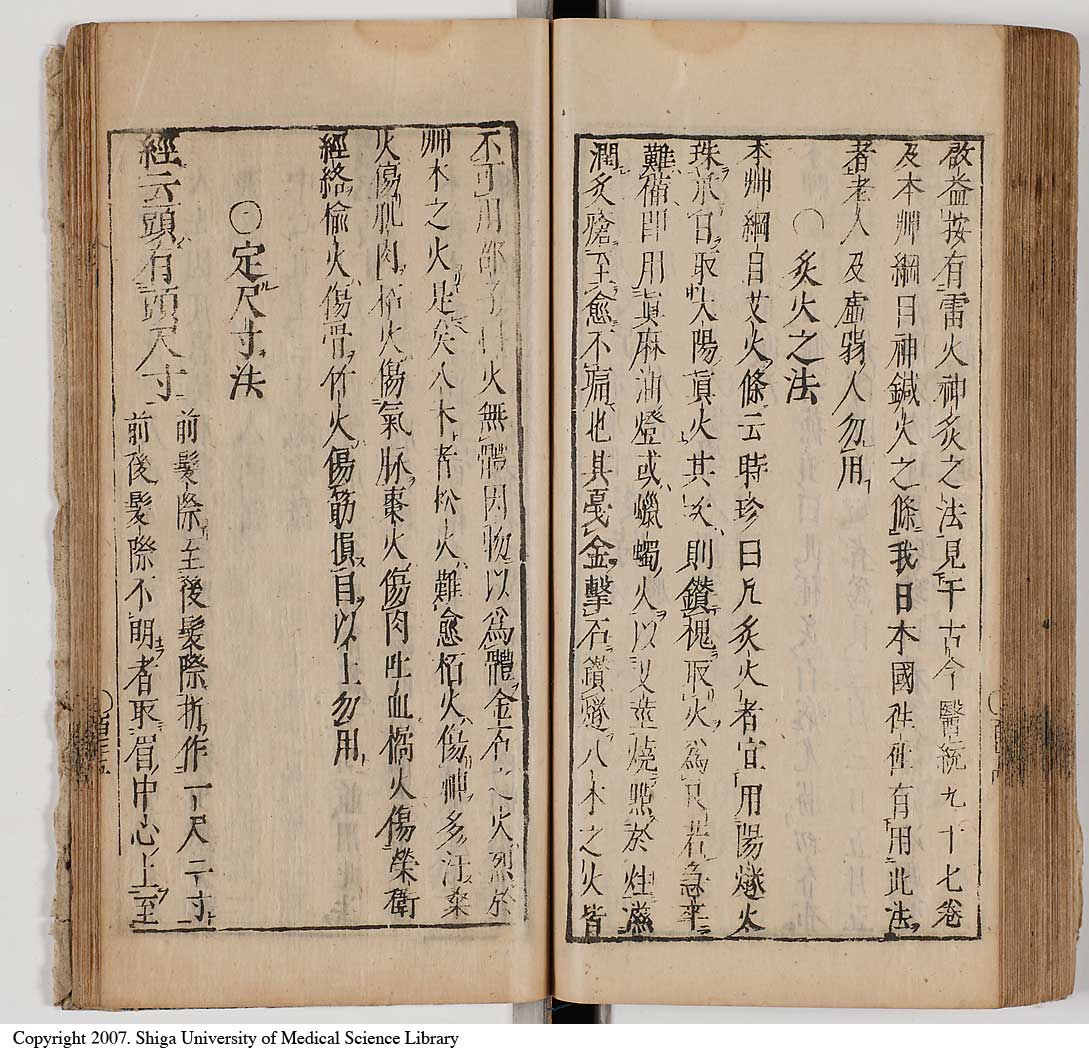 啟益按有雷火神灸之法見于古今醫統九十七卷
及本艸綱目神鍼火之條我日本國往往有用此法
者老人及虛弱人勿用
○灸火之法
本艸綱目艾火條云時珍曰凡灸火者宜用陽燧火
珠承日取太陽真火其次則鑽槐取火為良若急卒
難備即用真麻油燈或蠟燭火以艾莖燒照於炷滋
潤灸瘡至愈不痛也其戛金擊石鑽燧八木之火皆
不可用邵子曰火無體因物以為體金石之火烈於
艸木之火是矣八木者松火難愈栢火傷神多汗桑
火傷肌肉柘火傷氣脉棗火傷肉吐血橘火傷榮衛
經絡榆火傷骨竹火傷筋損目以上勿用
○定尺寸法
經云頭有頭尺寸
前髮際至後髮際折作一尺二寸
前後髮際不明者取眉中心上至